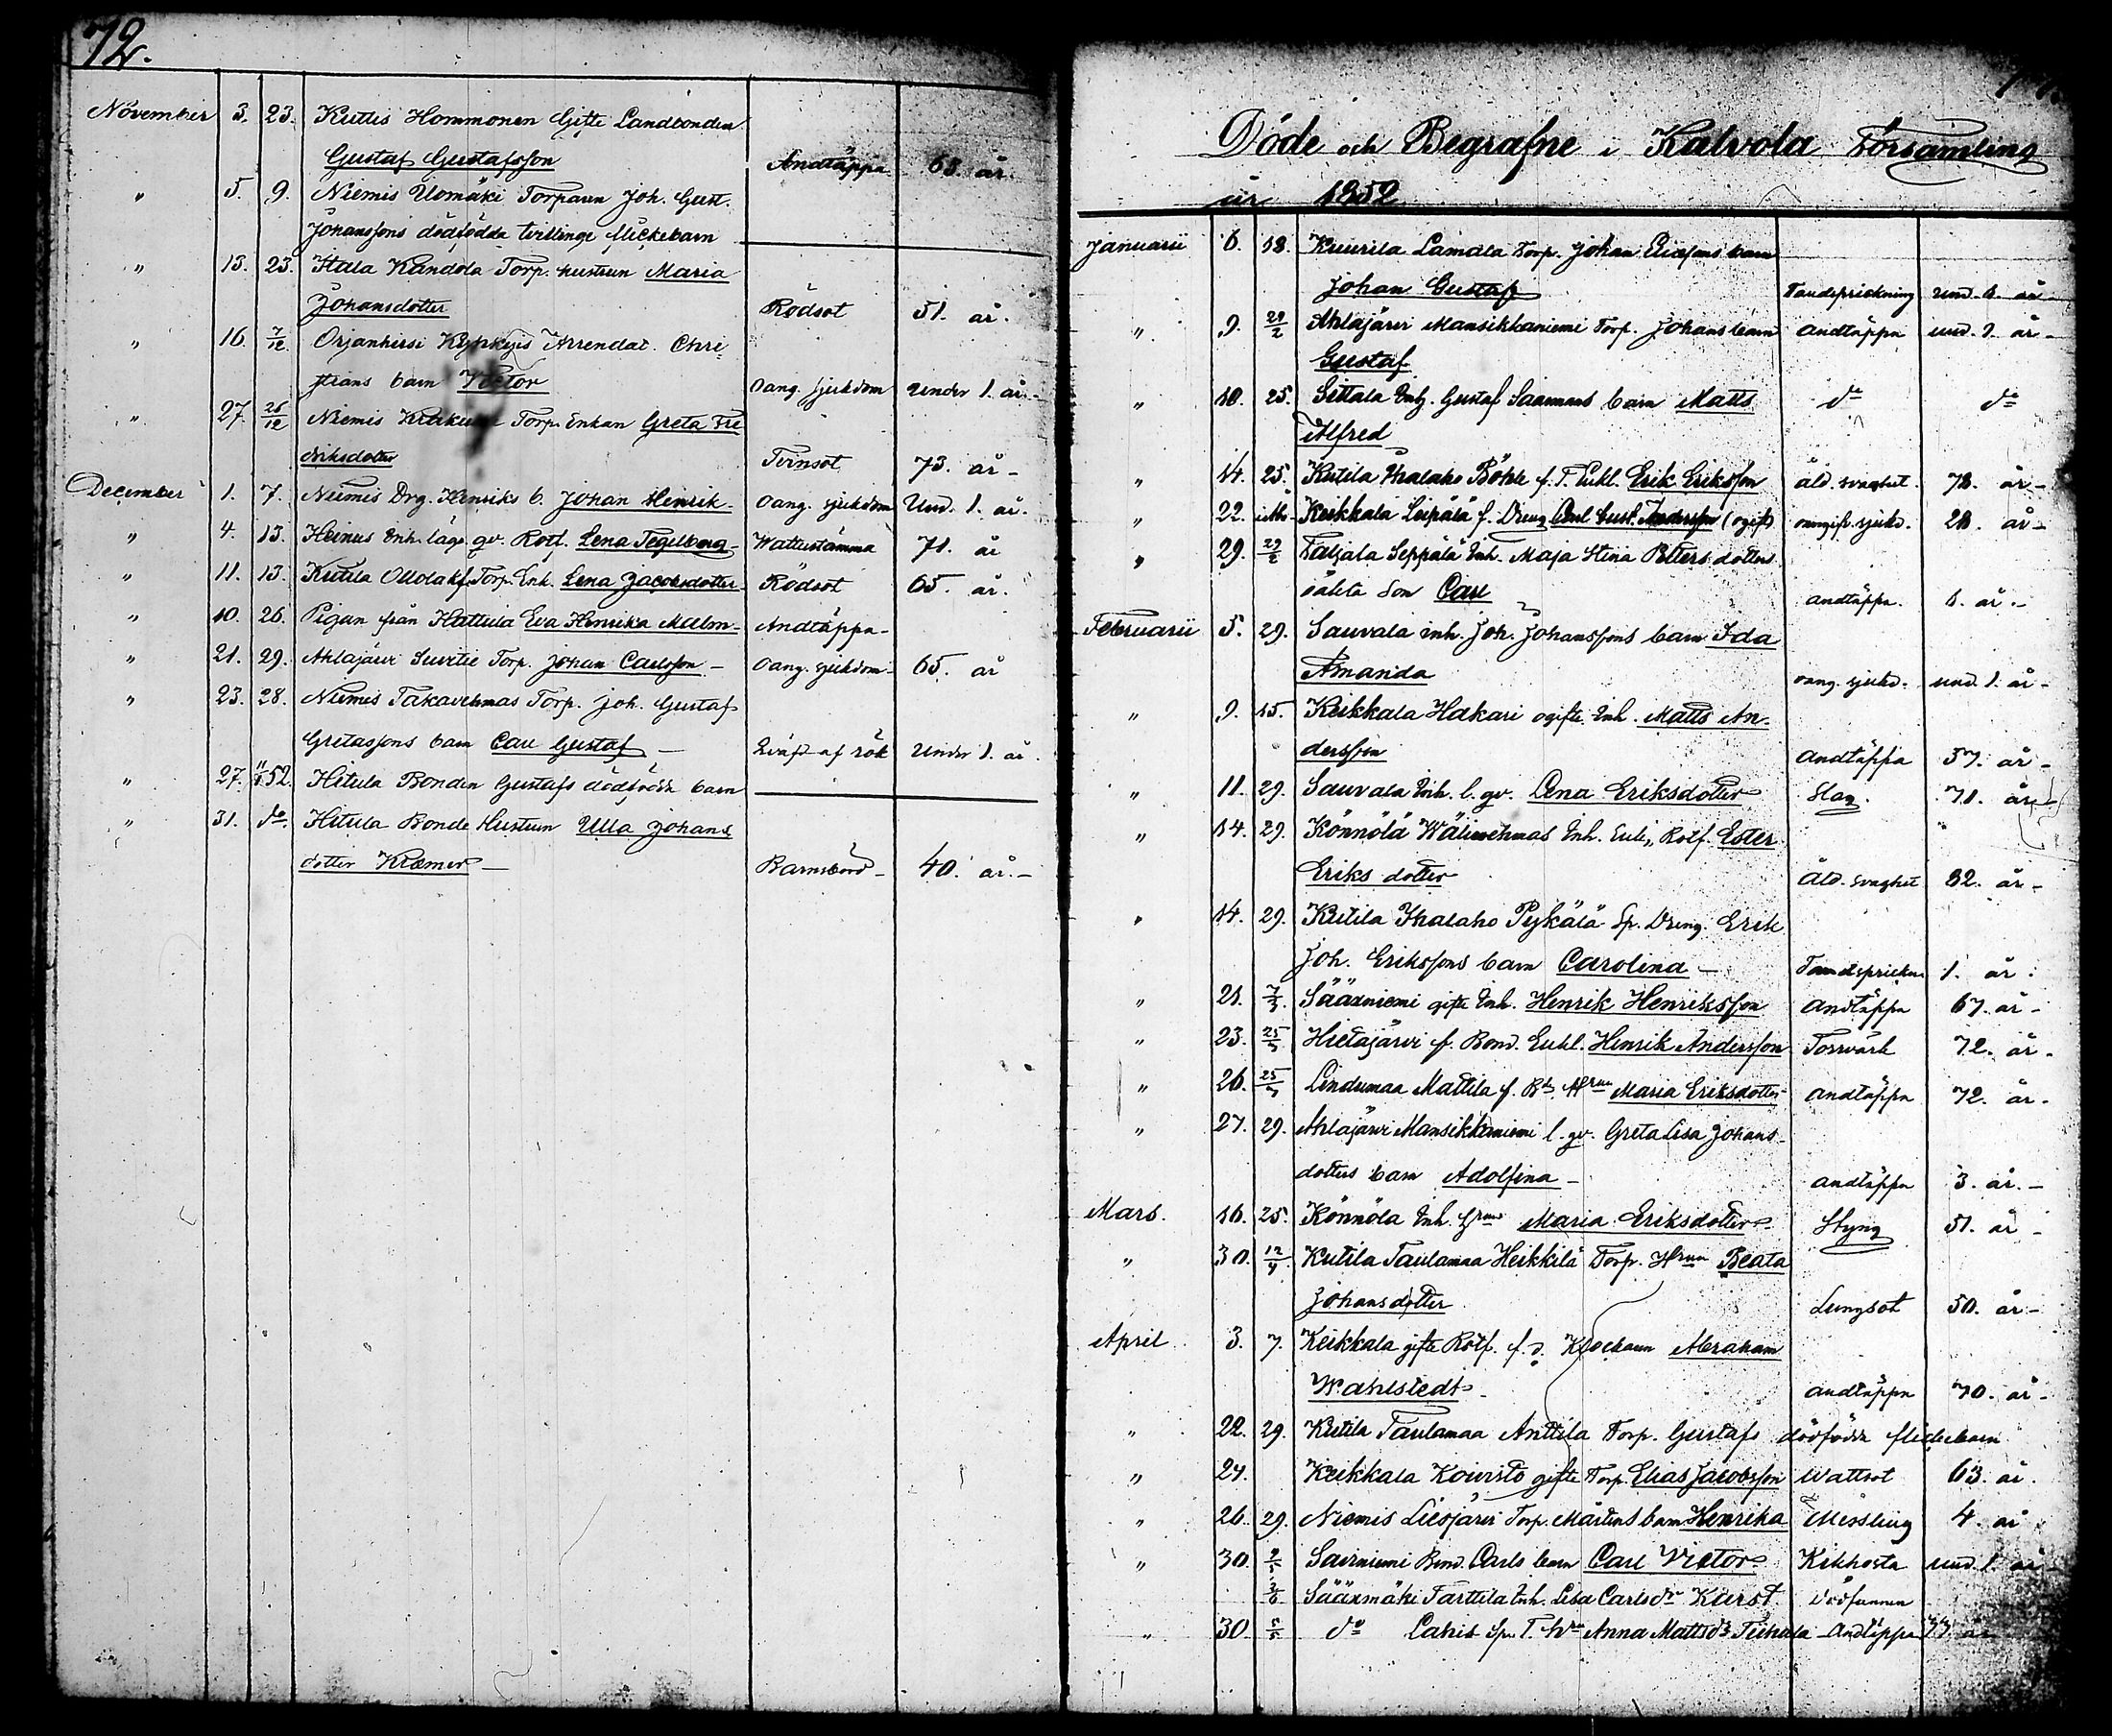 72.
November 3. 23. Kutlis Hommonen Gifte Landbonden
Gustaf Gustafsson Andtäppa 63. år.
" 5. 9. Niemis Uomäki Torparen Joh. Gust.
Johanssons dödfödda tvillinge flickebarn
" 13. 23. Itala Kandola Torp. hustrun Maria
Johansdotter Rödsot 51. år.
" 16. 7/12 Orjanhirsi Arrendat. Chri
stians barn Victor oang. sjukdom under 1. år.
" 27. 26/12 Niemis Torp. Enkan Greta Fre
driksdotter Tvinsot 73. år
December 1. 7. Niemis Drg. Henriks b. Johan Henrik oang. sjukdom Und. 1. år.
" 4. 13. Heinus Inh. läge qv. Rotf. Lena Tegelberg Wattustämma 71. år
" 11. 13. Kutila Ollola Torp. Enk. Lena Jacobsdotter Rödsot 65. år.
" 10. 26. Pigan från Hattula Eva Henrika Malm Andtäppa
" 21. 29. Ahlajärvi Suvitie Torp. Johan Carlsson oang. sjukdom 65. år
" 23. 28. Niemis Takavehmas Torp. Joh. Gustaf
Gretassons barn Carl Gustaf Qväfd af rök under 1. år.
" 27. 52. Hitula Bonden Gustafs dödfödda barn
" 31. do. Hitula Bonde Hustrun Ulla Johans
dotter Kræmer Barnsbörd 40. år.
Döde och Begrafne i Kalvola Församling
år 1852
Januarii 6. 18. Kuurila Lamala Torp. Johan Eliassons barn
Johan Gustaf Tandsprickning und. 1. år
" 9. 29/2 Ahlajärvi Mansikkaniemi Torp. Johans barn andtäppa und. 1. år
Gustaf
" 10. 25. Sittala Inh. Gustaf Saarmans barn Matts do do
Alfred
" 14. 25. Kutila Ihalaho Böhle f. T. Enkl. Erik Eriksson åld. svaghet. 78. år
" 22. Keikkala Leipälä f. Dreng Carl Gust. Andersson (ogift) oangifv. sjukd. 28. år
" 29. 29/2 Taljala Seppälä Inh. Maja Stina Petters dotters
oäkta Son Carl andtäppa. 1. år.
Februarii 5. 29. Sauvala inh. Joh. Johanssons barn Ida
Amanda oang. sjukd. und. 1. år
" 9. 15. Keikkala Hakari ogifte Inh. Matts An
dersson andtäppa 57. år
" 11. 29. Sauvala Inh. l. qv. Lena Eriksdotter Slag. 71. år
" 14. 29. Könnölä Wälivehmas Inh. Enk. Rotf. Ester
Eriks dotter åld. svaghet 82. år
" 14. 29. Kutila Ihalaho Pykälä Sp. Dreng. Erik
Joh. Erikssons barn Carolina Tandsprickn 1. år.
" 21. 7/3 Sääxniemi gifte Inh. Henrik Henriksson andtäppa 67. år
" 23. 25/3 Hietajärvi f. Bond. Enkl. Henrik Andersson Torrvärk 72. år.
" 26. 25/3 Lindumaa Mattila f. Bd. Hrun Maria Eriksdotter andtäppa 72. år.
" 27. 29. Ahlajärvi Mansikkaniemi l. qv. Greta Lisa Johans
dotters barn Adolfina andtäppa 3. år.
Mars. 16. 25. Könnölä Inh. Hrun Maria Eriksdotter Styng 51. år
" 30. 12/4 Kutila Taulamaa Heikkilä Torp. Hrun Beata
Johansdotter Lungsot 50. år
April 3. 7. Keikkala gifte Rotf. f. d. Klockaren Abraham
Wahlstedt andtäppa 70. år
" 22. 29. Kutila Taulamaa Anttila Torp. Gustafs dödfödda flickebarn
" 24. Keikkala Koivisto gifte Torp. Elias Jacobsson Wattsot 63. år.
" 26. 29. Niemis Liesjärvi Torp. Mårtens barn Henrika Messling 4. år
" 30. 9/5 Sairniemi Bond. Carls barn Carl Victor Kikhosta und. 1. år
Sääxmäki Tarttila Inh. Lisa Carlsdr Kurst dödfunnen
" 30. 5/5 do Lahis Sp. T. Anna Mattsdr Andtäppa